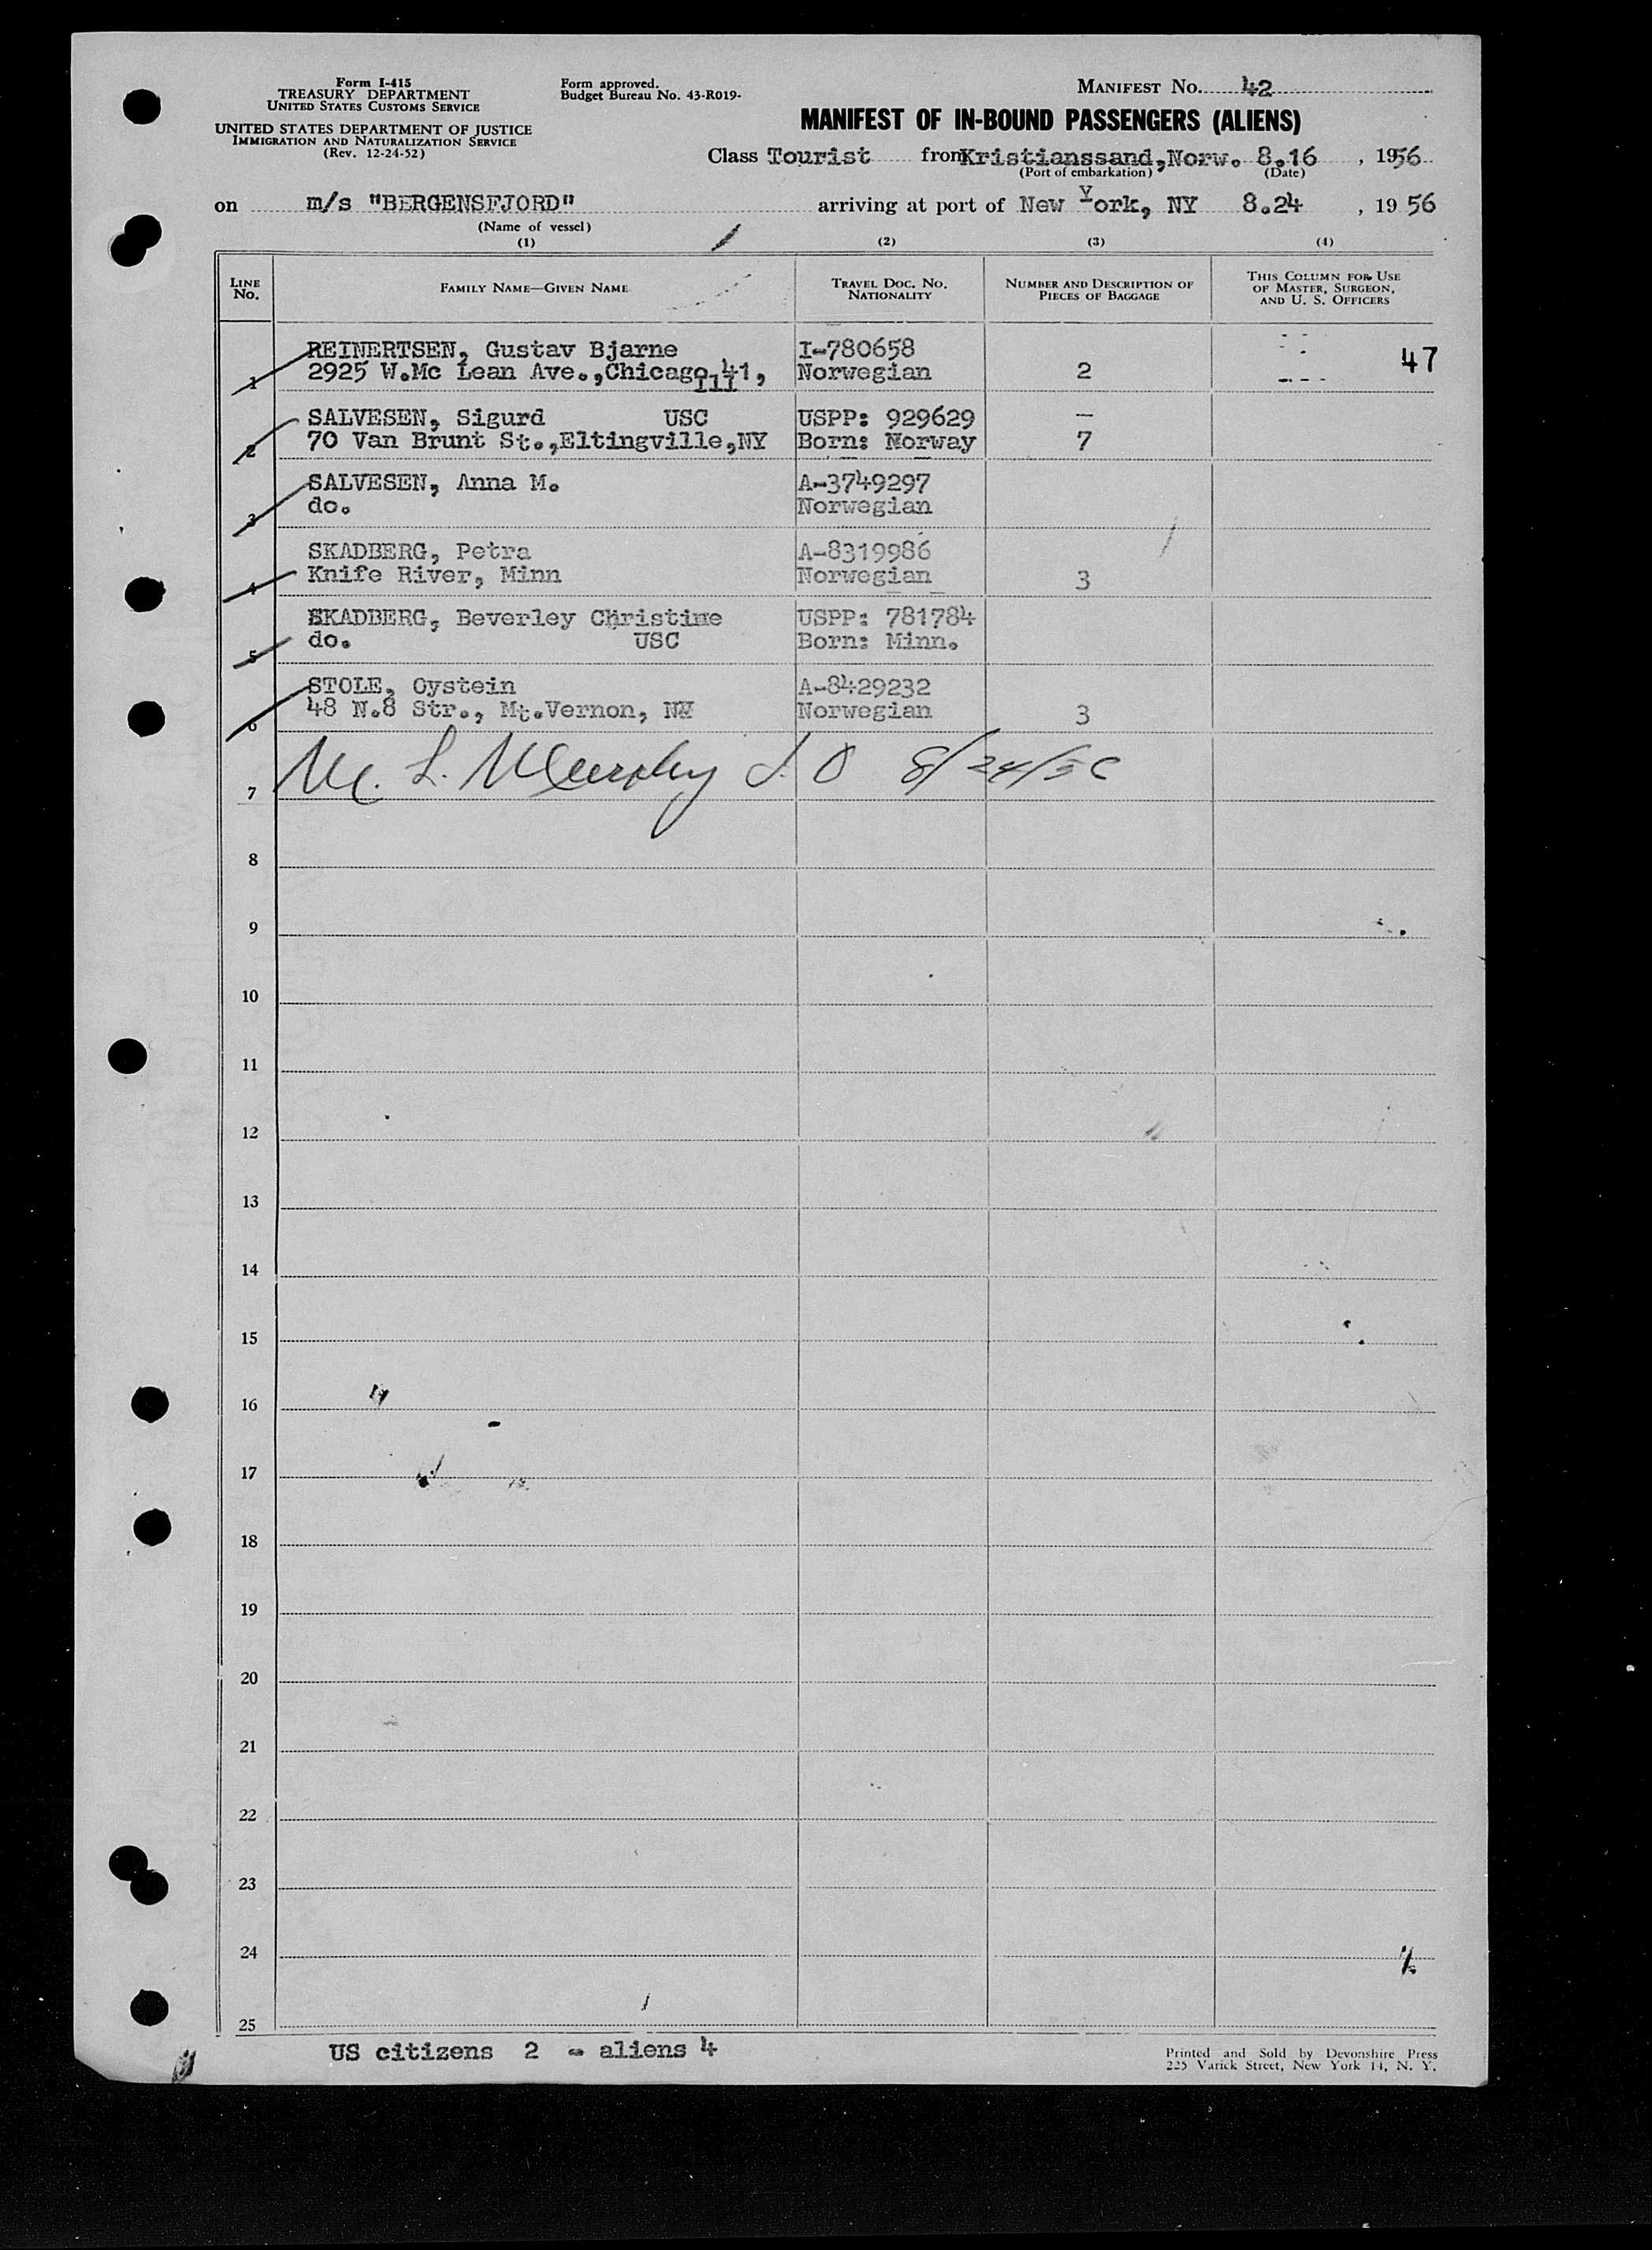 Form I-415
TREASURY DEPARTMENT
UNITED STATES CUSTOMS SERVICE
UNITED STATES DEPARTMENT OF JUSTICE
IMMIGRATION AND NATURALIZATION SERVICE
(Rev. 12-24-52)
Form approved.
Budget Bureau No. 43-R019-
MANIFEST NO. 42
MANIFEST OF IN-BOUND PASSENGERS (ALIENS)
Class Tourist from Kristianssand, Norw. 8.16, 1956
(Port of embarkation) (Date)
on m/s "BERGENSFJORD" arriving at port of New York, NY 8.24, 19 56
(Name of vessel)
(1) (2) (3) (4)
LINE No. FAMILY NAME—GIVEN NAME TRAVEL DOC. NO. NATIONALITY NUMBER AND DESCRIPTION OF PIECES OF BAGGAGE THIS COLUMN FOR USE OF MASTER, SURGEON, AND U. S. OFFICERS
REINERTSEN, Gustav Bjarne I-780658 47
1 2925 W.Mc Lean Ave.,Chicago 41, Ill Norwegian 2
SALVESEN, Sigurd USC USPP: 929629 —
2 70 Van Brunt St.,Eltingville,NY Born: Norway 7
SALVESEN, Anna M. A-3749297
3 do. Norwegian
SKADBERG, Petra A-8319986
4 Knife River, Minn Norwegian 3
SKADBERG, Beverley Christine USPP: 781784
5 do. USC Born: Minn.
STOLE, Oystein A-8429232
6 48 N.8 Str., Mt.Vernon, NY Norwegian 3
7 M. L. Murphy I O 8/24/56
8
9
10
11
12
13
14
15
16
17
18
19
20
21
22
23
24
25
US citizens 2 - aliens 4
Printed and Sold by Devonshire Press
225 Varick Street, New York 14, N. Y.